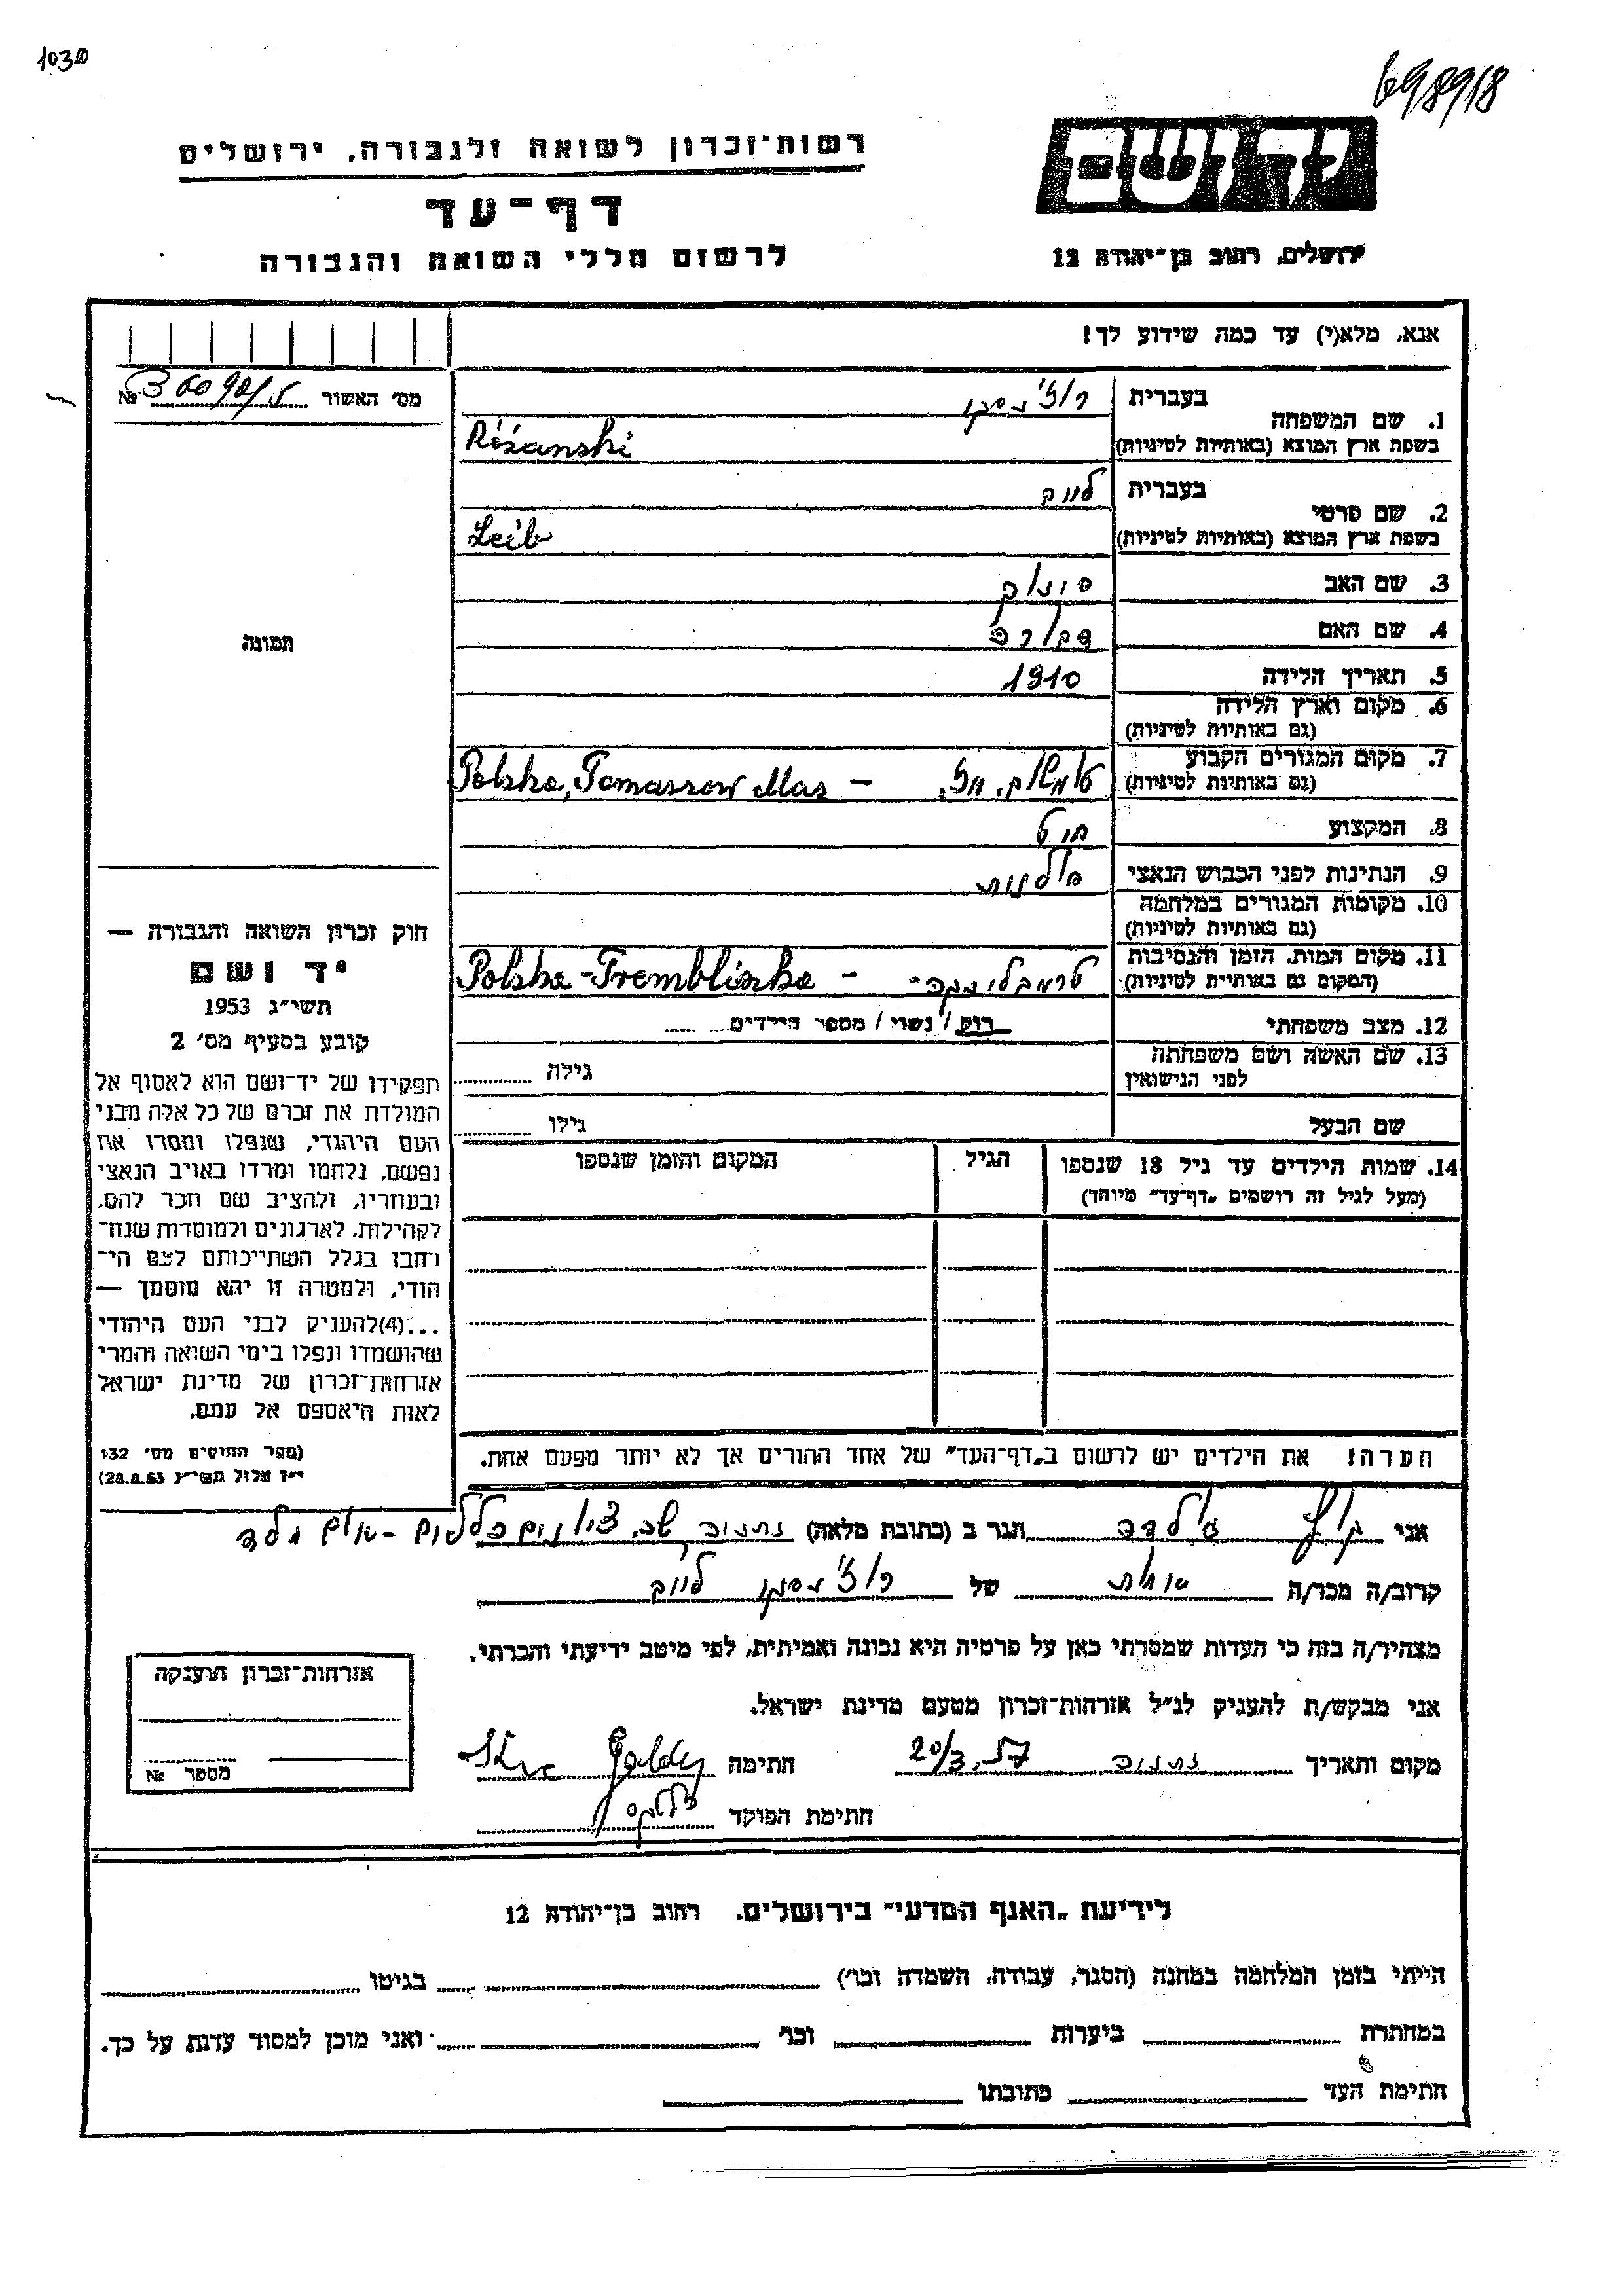 1030
698918
יד ושם
רשות־זכרון לשואה ולגבורה, ירושלים
דף־עד
לרשום חללי השואה והגבורה
ירושלים, רחוב בן־יהודה 12
אנא, מלא(י) עד כמה שידוע לך!
מס' האשור №
1. שם המשפחה
בעברית
בשפת ארץ המוצא (באותיות לטיניות) Różanski
2. שם פרטי
בעברית לייב
בשפת ארץ המוצא (באותיות לטיניות) Leib
3. שם האב
4. שם האם
5. תאריך הלידה 1910
6. מקום וארץ הלידה
(גם באותיות לטיניות)
7. מקום המגורים הקבוע
(גם באותיות לטיניות) Polska, Tomaszow Maz –
8. המקצוע
9. הנתינות לפני הכבוש הנאצי פולנית
10. מקומות המגורים במלחמה
(גם באותיות לטיניות)
11. מקום המות, הזמן והנסיבות
(המקום גם באותיות לטיניות) טרמבלינקה - Polska - Tremblinka -
12. מצב משפחתי רווק / נשוי / מספר הילדים
13. שם האשה ושם משפחתה
לפני הנישואין
גילה
שם הבעל גילו
14. שמות הילדים עד גיל 18 שנספו
(מעל לגיל זה רושמים „דף־עד" מיוחד)
הגיל
המקום והזמן שנספו
הערה: את הילדים יש לרשום ב„דף־העד" של אחד ההורים אך לא יותר מפעם אחת.
תמונה
חוק זכרון השואה והגבורה —
יד ושם
תשי"ג 1953
קובע בסעיף מס' 2
תפקידו של יד־ושם הוא לאסוף אל
המולדת את זכרם של כל אלה מבני
העם היהודי, שנפלו ומסרו את
נפשם, נלחמו ומרדו באויב הנאצי
ובעוזריו, ולהציב שם וזכר להם,
לקהילות, לארגונים ולמוסדות שנח־
רחבו בגלל השתייכותם לעם הי־
הודי, ולמטרה זו יהא מוסמך —
...(4) להעניק לבני העם היהודי
שהושמדו ונפלו בימי השואה והמרי
אזרחות־זכרון של מדינת ישראל
לאות היאספם אל עמם.
(ספר החוקים מס' 132
י"ז אלול תשי"ג 28.8.53)
אני גולדה הגר ב (כתובת מלאה) נתניה
קרוב/ה מכר/ה אחות של רוז'נסקי לייב
מצהיר/ה בזה כי העדות שמסרתי כאן על פרטיה היא נכונה ואמיתית, לפי מיטב ידיעתי והכרתי.
אני מבקש/ת להעניק לנ"ל אזרחות־זכרון מטעם מדינת ישראל.
מקום ותאריך נתניה 20/3. 57 חתימה
חתימת הפוקד
אזרחות־זכרון הוענקה
מספר №
לידיעת „האגף המדעי" בירושלים, רחוב בן־יהודה 12
הייתי בזמן המלחמה במחנה (הסגר, עבודה, השמדה וכו') בגיטו
במחתרת ביערות וכו' ואני מוכן למסור עדות על כך.
חתימת העד כתובתו